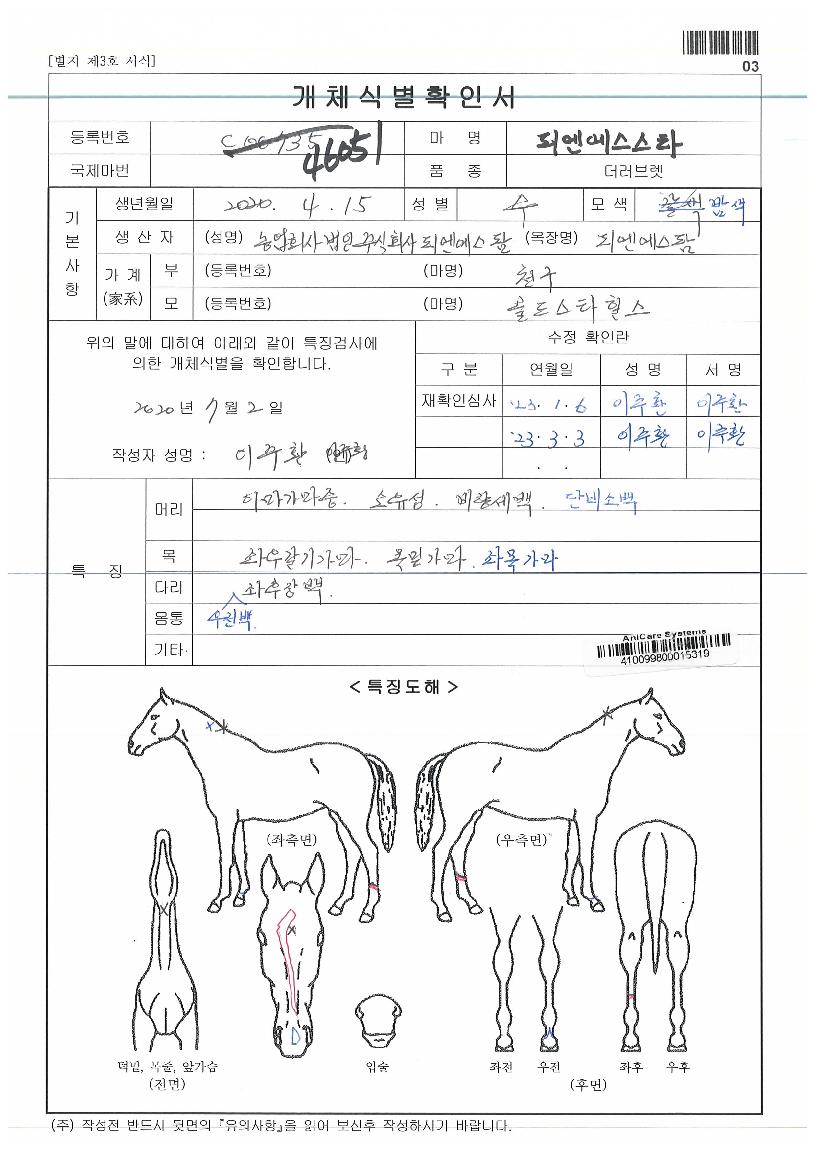 [별지 제3호 서식]
03
개체식별확인서
등록번호 C00735 46051 마 명 피엔에스스타
국제마번 품 종 더러브렛
기본사항
생년월일 2020. 4. 15 성별 수 모색 갈색 밤색
생산자 (성명) 농업회사법인주식회사피엔에스팜 (목장명) 피엔에스팜
가계(家系) 부 (등록번호) (마명) 천구
모 (등록번호) (마명) 올드스타힐스
위의 말에 대하여 아래와 같이 특징검사에
의한 개체식별을 확인합니다.
2020년 7월 2일
작성자 성명 : 이주환
수정 확인란
구분 연월일 성명 서명
재확인심사 '23. 1. 6 이주환 이주환
'23. 3. 3 이주환 이주환
. .
특 징
머리 이마가마중. 소유성. 비량세백. 단비소백
목 좌우갈기가마. 목밑가마. 좌목가마
다리 좌후장백.
몸통 우전백.
기타
AniCare Systems
410099800015319
< 특징도해 >
(좌측면) (우측면)
턱밑, 목줄, 앞가슴
(전면)
입술
좌전 우전 좌후 우후
(후면)
(주) 작성전 반드시 뒷면의 『유의사항』을 읽어 보신후 작성하시기 바랍니다.